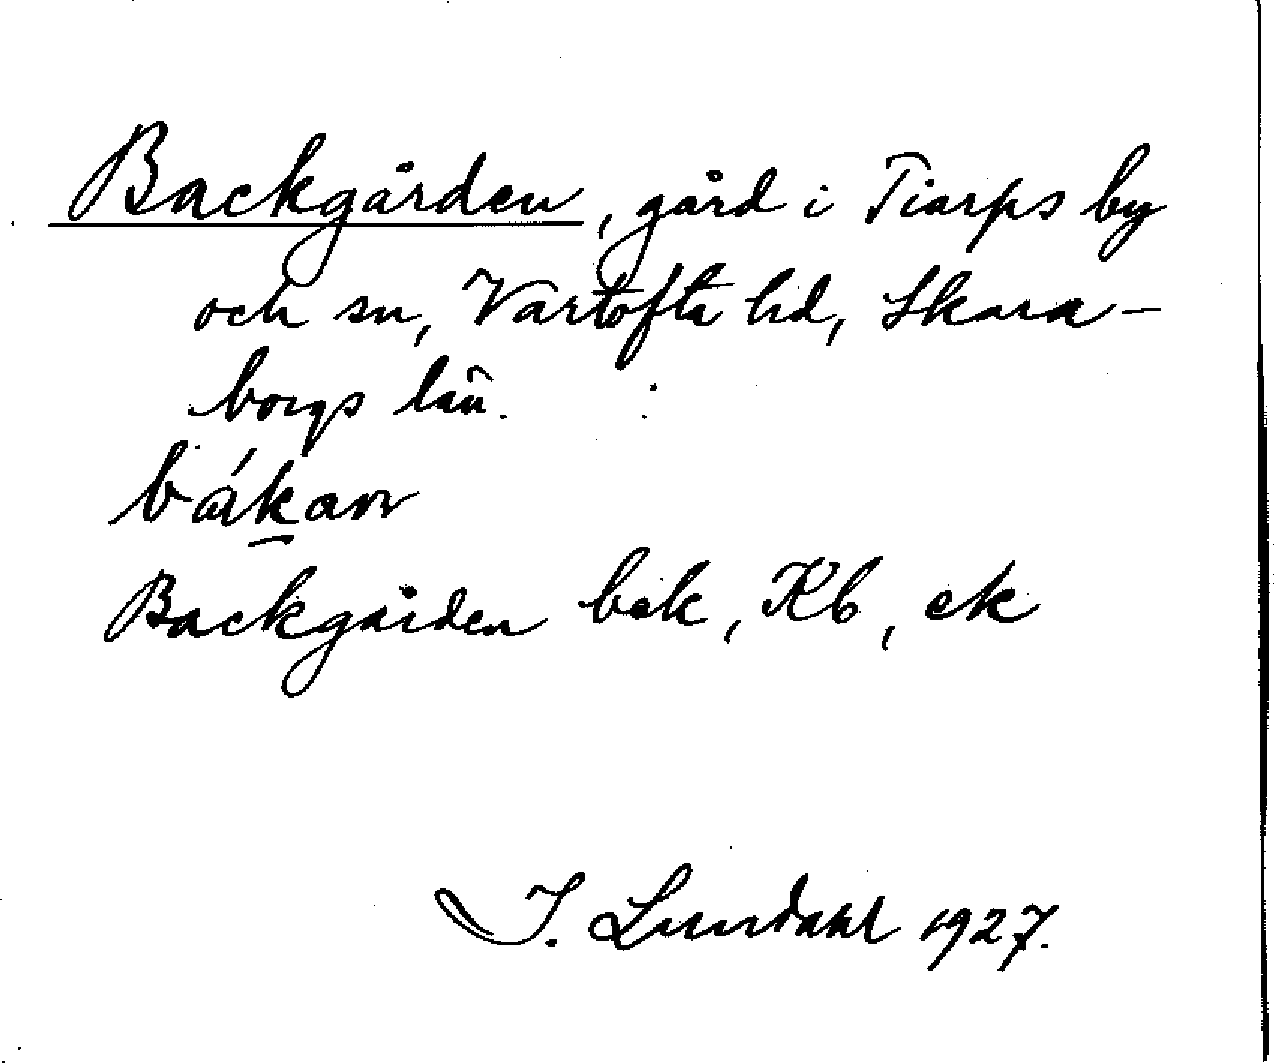 Backgården, gård i Tiarps by
och sn, Vartofta hd, Skara-
borgs län.
Backgården bek, Kb, ek
I. Lundahl 1927.